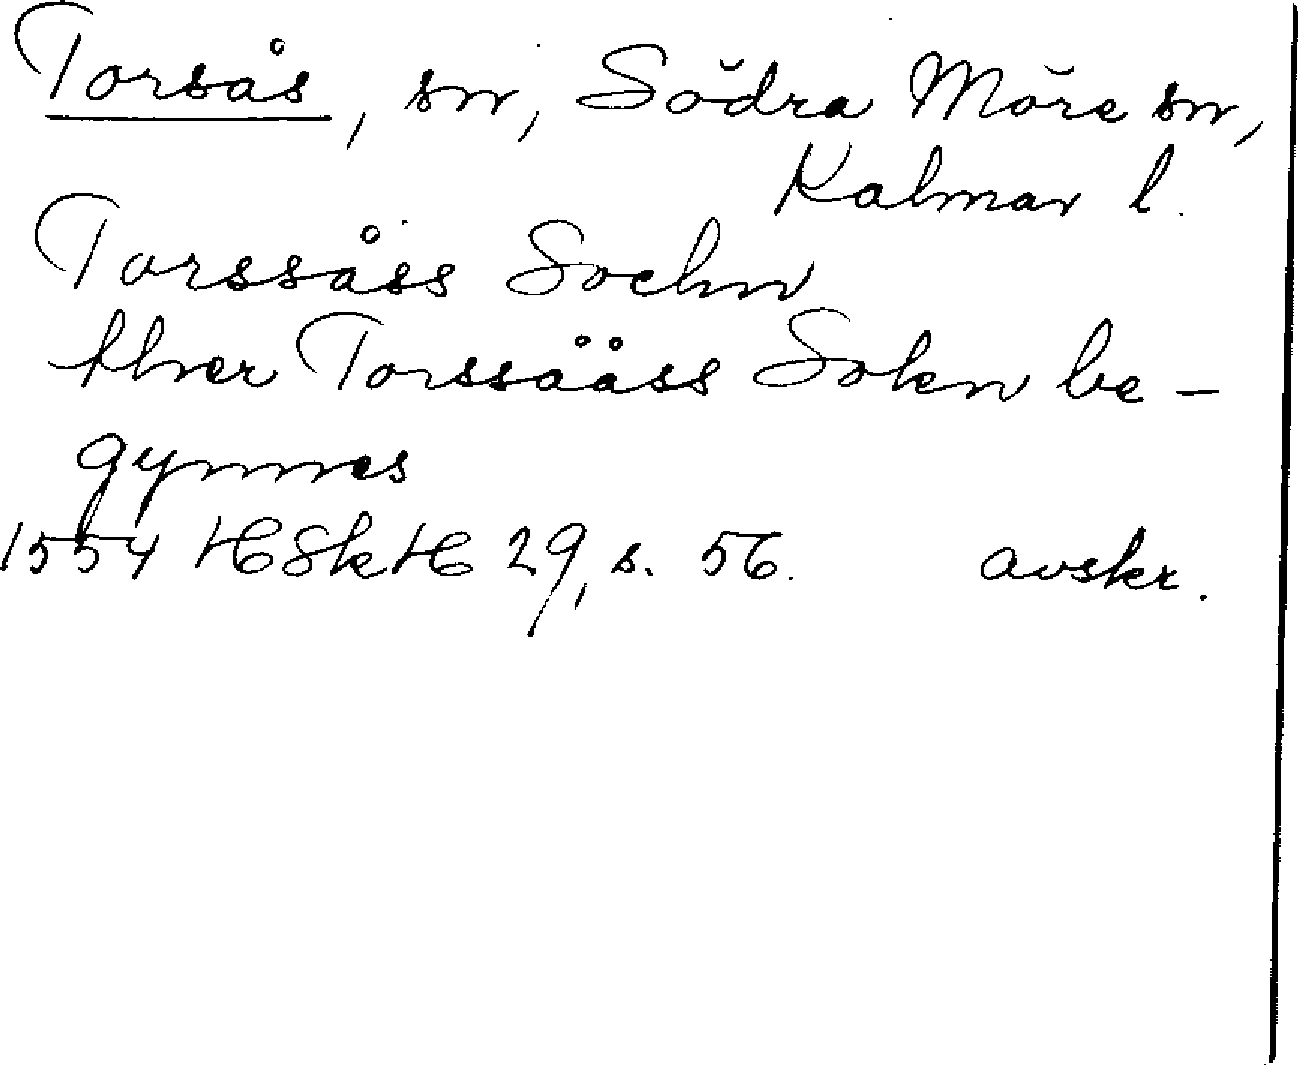 Torsås, sn, Södra Möre sn,
Kalmar l.
Torssåss Sochn
Torssååss Sokn be-
gynnes
1554 HSkH 29, s. 56. avskr.